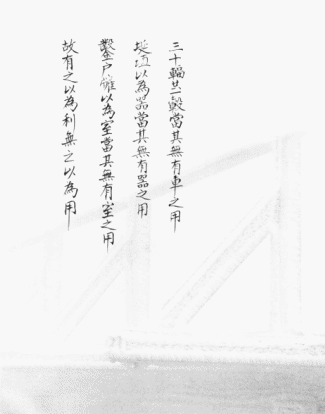 三十輻共一轂當其無有車之用
埏埴以為器當其無有器之用
鑿戶牖以為室當其無有室之用
故有之以為利無之以為用